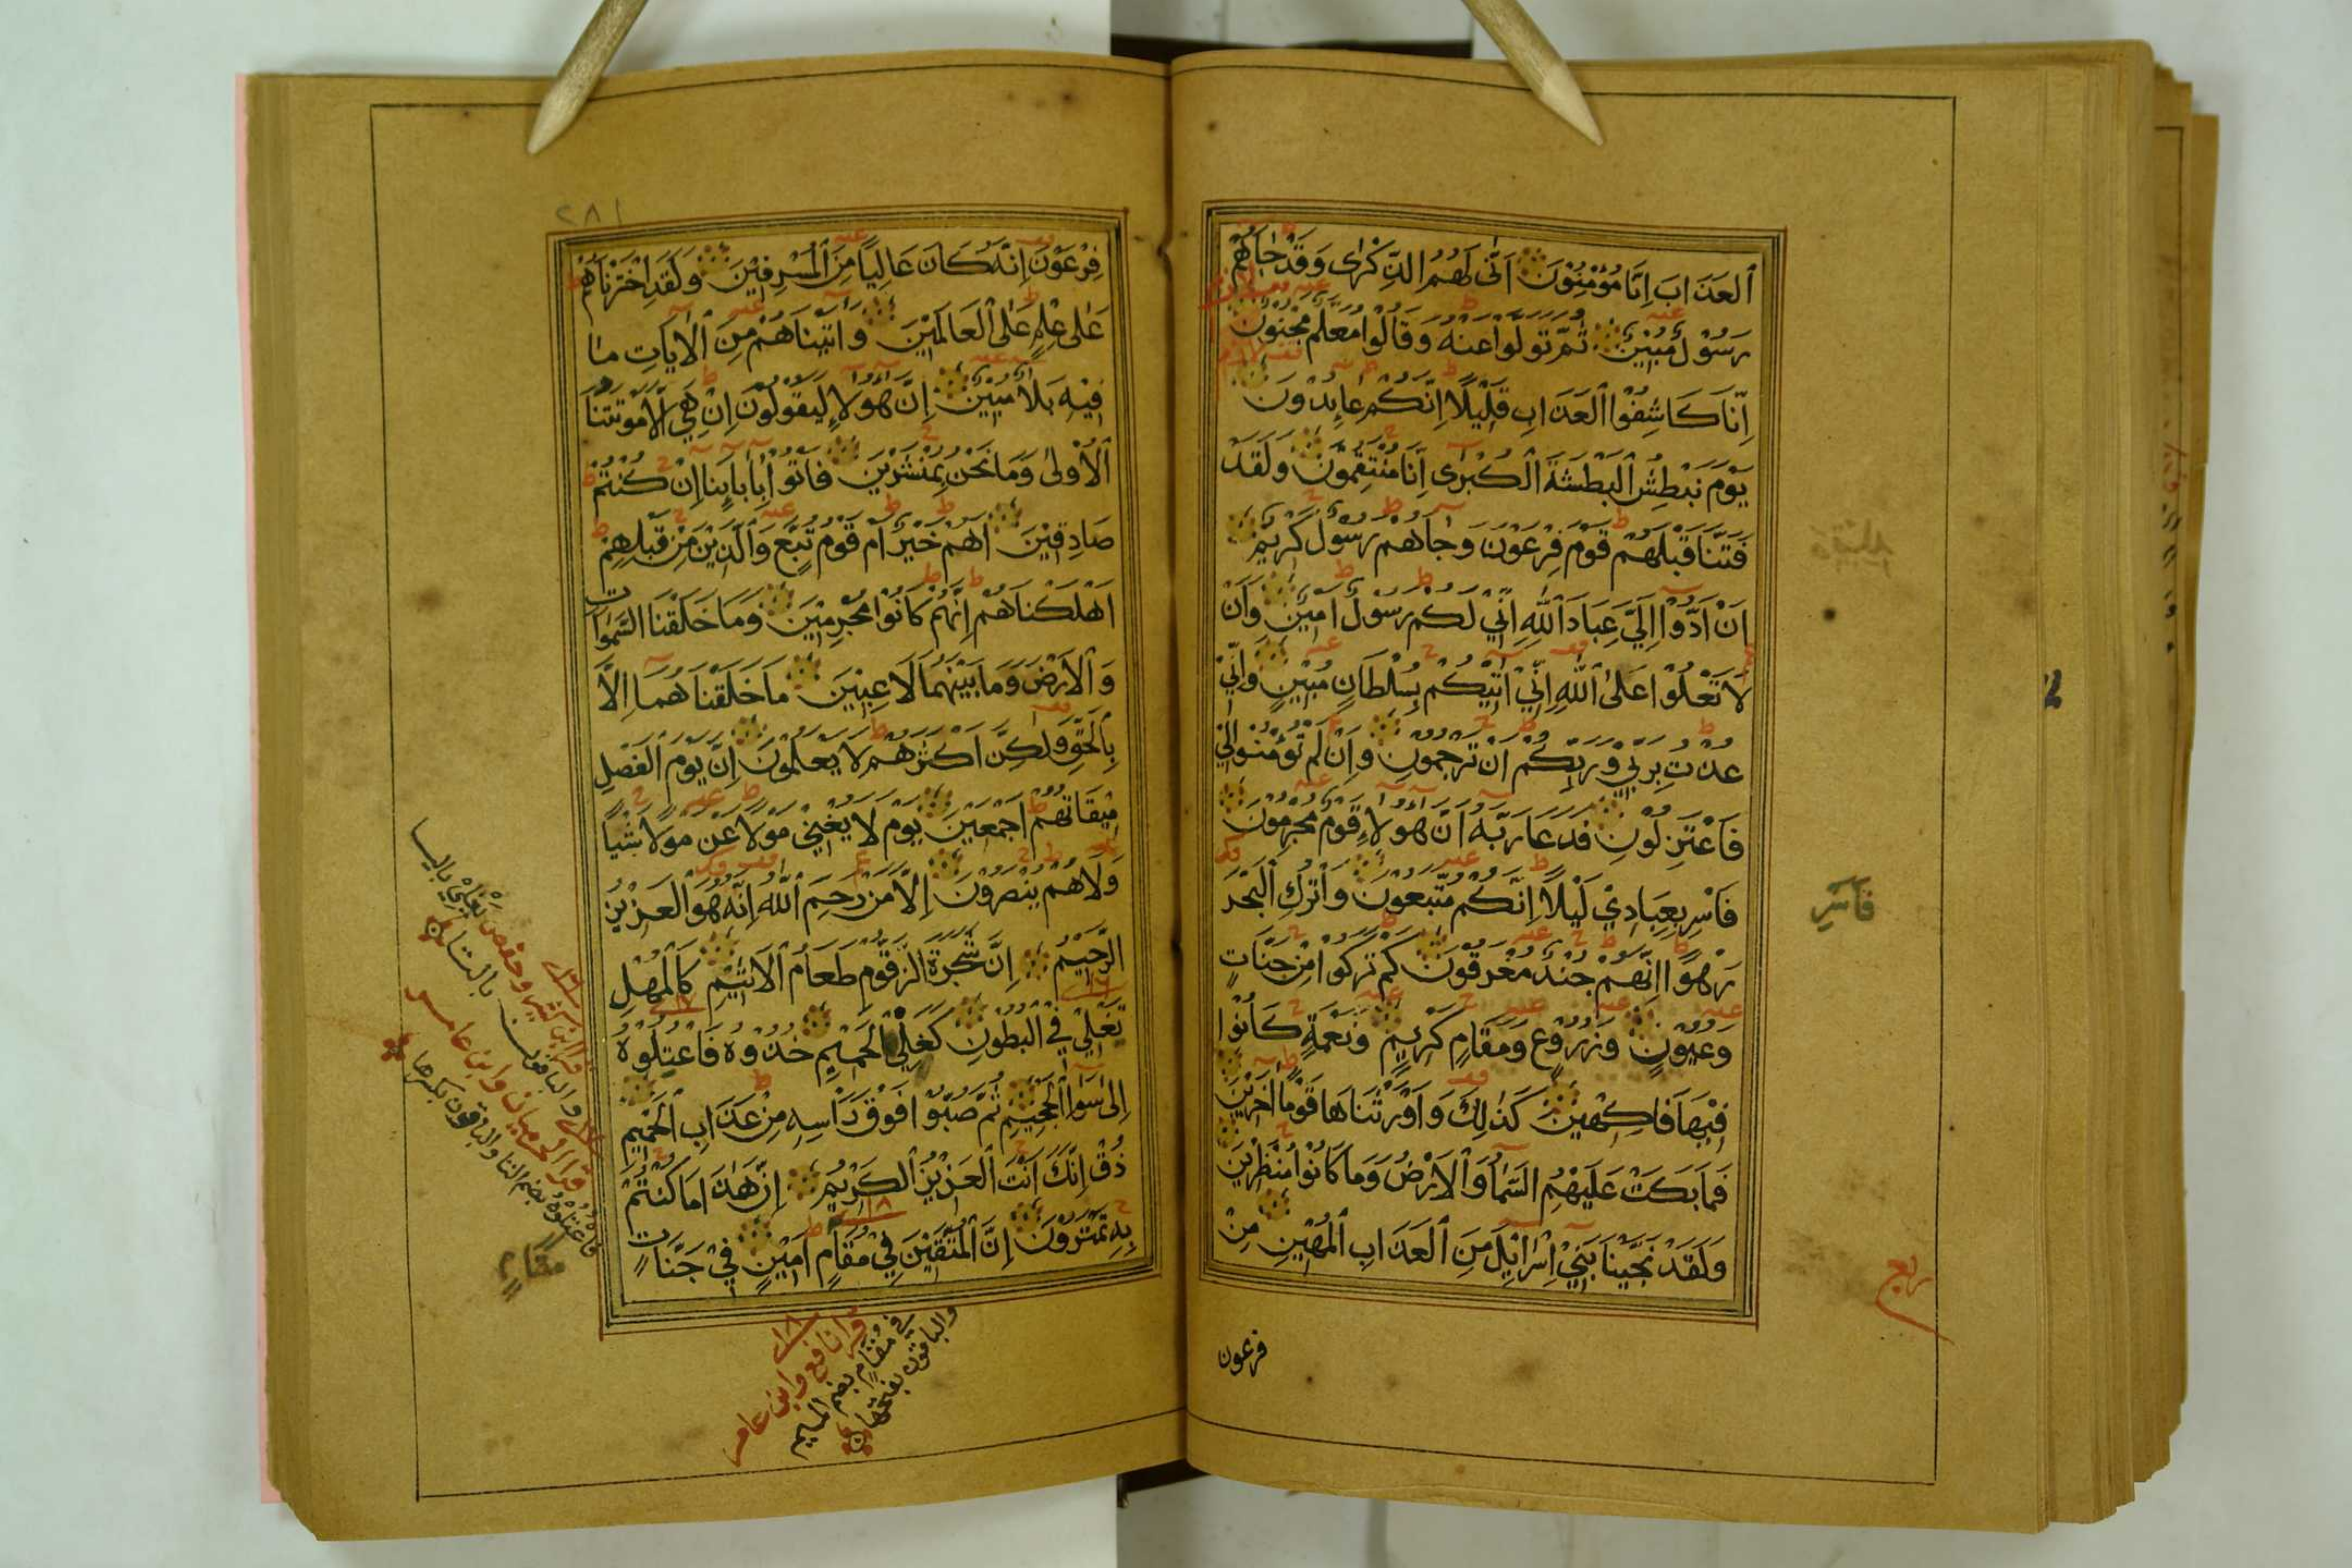 ٱلعَذَابَ اِنَّا مُؤْمِنُوْنَ اَنّٰى لَهُمُ الذِّكْرٰى وَقَدْ جَاۤءَهُمْ
رَسُوْلٌ مُبِيْنٌ ثُمَّ تَوَلَّوْا عَنْهُ وَقَالُوْا مُعَلَّمٌ مَجْنُوْنٌ
اِنَّا كَاشِفُوْا ٱلعَذَابِ قَلِيْلًا اِنَّكُمْ عَاىِٕدُوْنَ
يَوْمَ نَبْطِشُ ٱلبَطْشَةَ ٱلكُبْرٰى اِنَّا مُنْتَقِمُوْنَ وَلَقَدْ
فَتَنَّا قَبْلَهُمْ قَوْمَ فِرْعَوْنَ وَجَاۤءَهُمْ رَسُوْلٌ كَرِيْمٌ
اَنْ اَدُّوْۤا اِلَيَّ عِبَادَ ٱللّٰهِ اِنِّيْ لَكُمْ رَسُوْلٌ اَمِيْنٌ وَاَنْ
لَا تَعْلُوْا عَلَى ٱللّٰهِ اِنِّيْۤ اٰتِيْكُمْ بِسُلْطَانٍ مُبِيْنٍ وَاِنِّيْ
عُذْتُ بِرَبِّيْ وَرَبِّكُمْ اَنْ تَرْجُمُوْنِ وَاِنْ لَمْ تُؤْمِنُوْا لِيْ
فَاعْتَزِلُوْنِ فَدَعَا رَبَّهٗ اَنَّ هٰۤؤُلَاۤءِ قَوْمٌ مُجْرِمُوْنَ
فَاَسْرِ بِعِبَادِيْ لَيْلًا اِنَّكُمْ مُتَّبَعُوْنَ وَاتْرُكِ ٱلبَحْرَ
رَهْوًا اِنَّهُمْ جُنْدٌ مُغْرَقُوْنَ كَمْ تَرَكُوْا مِنْ جَنَّاتٍ
وَعُيُوْنٍ وَزُرُوْعٍ وَمَقَامٍ كَرِيْمٍ وَنَعْمَةٍ كَانُوْا
فِيْهَا فَاكِهِيْنَ كَذٰلِكَ وَاَوْرَثْنَاهَا قَوْمًا اٰخَرِيْنَ
فَمَا بَكَتْ عَلَيْهِمُ السَّمَاۤءُ وَٱلاَرْضُ وَمَا كَانُوْا مُنْظَرِيْنَ
وَلَقَدْ نَجَّيْنَا بَنِيْۤ اِسْرَاۤىِٕيْلَ مِنَ ٱلعَذَابِ ٱلمُهِيْنِ مِنْ
فرعون
فَاَسْرِ
ربع
٢٨١
فِرْعَوْنَ اِنَّهٗ كَانَ عَالِيًا مِنَ ٱلمُسْرِفِيْنَ وَلَقَدِ اخْتَرْنَاهُمْ
عَلٰى عِلْمٍ عَلَى ٱلعَالَمِيْنَ وَاٰتَيْنَاهُمْ مِنَ ٱلاٰيَاتِ مَا
فِيْهِ بَلَاۤءٌ مُبِيْنٌ اِنَّ هٰۤؤُلَاۤءِ لَيَقُوْلُوْنَ اِنْ هِيَ اِلَّا مَوْتَتُنَا
ٱلاُوْلٰى وَمَا نَحْنُ بِمُنْشَرِيْنَ فَأْتُوْا بِاٰبَاۤىِٕنَا اِنْ كُنْتُمْ
صَادِقِيْنَ اَهُمْ خَيْرٌ اَمْ قَوْمُ تُبَّعٍ وَٱلَّذِيْنَ مِنْ قَبْلِهِمْ
اَهْلَكْنَاهُمْ اِنَّهُمْ كَانُوْا مُجْرِمِيْنَ وَمَا خَلَقْنَا السَّمٰوَاتِ
وَٱلاَرْضَ وَمَا بَيْنَهُمَا لَاعِبِيْنَ مَا خَلَقْنَاهُمَاۤ اِلَّا
بِٱلحَقِّ وَلٰكِنَّ اَكْثَرَهُمْ لَا يَعْلَمُوْنَ اِنَّ يَوْمَ ٱلفَصْلِ
مِيْقَاتُهُمْ اَجْمَعِيْنَ يَوْمَ لَا يُغْنِيْ مَوْلًا عَنْ مَوْلًا شَيْـًٔا
وَلَا هُمْ يُنْصَرُوْنَ اِلَّا مَنْ رَحِمَ ٱللّٰهُ اِنَّهٗ هُوَ ٱلعَزِيْزُ
الرَّحِيْمُ اِنَّ شَجَرَةَ الزَّقُّوْمِ طَعَامُ ٱلاَثِيْمِ كَٱلمُهْلِ
تَغْلِيْ فِي ٱلبُطُوْنِ كَغَلْيِ ٱلحَمِيْمِ خُذُوْهُ فَاعْتُلُوْهُ
اِلٰى سَوَاۤءِ ٱلجَحِيْمِ ثُمَّ صُبُّوْا فَوْقَ رَأْسِهٖ مِنْ عَذَابِ ٱلحَمِيْمِ
ذُقْ اِنَّكَ اَنْتَ ٱلعَزِيْزُ ٱلكَرِيْمُ اِنَّ هٰذَا مَا كُنْتُمْ
بِهٖ تَمْتَرُوْنَ اِنَّ ٱلمُتَّقِيْنَ فِيْ مُقَامٍ اَمِيْنٍ فِيْ جَنَّاتٍ
قرا ابن كثير وحفص يغلي باليا
والباقون بالتا
قرا الحرميان وابن عامر
فاعتلوه بضم التا والباقون بكسرها
مَقَامٍ
قرا نافع وابن عامر
في مقام بضم الميم
والباقون بفتحها